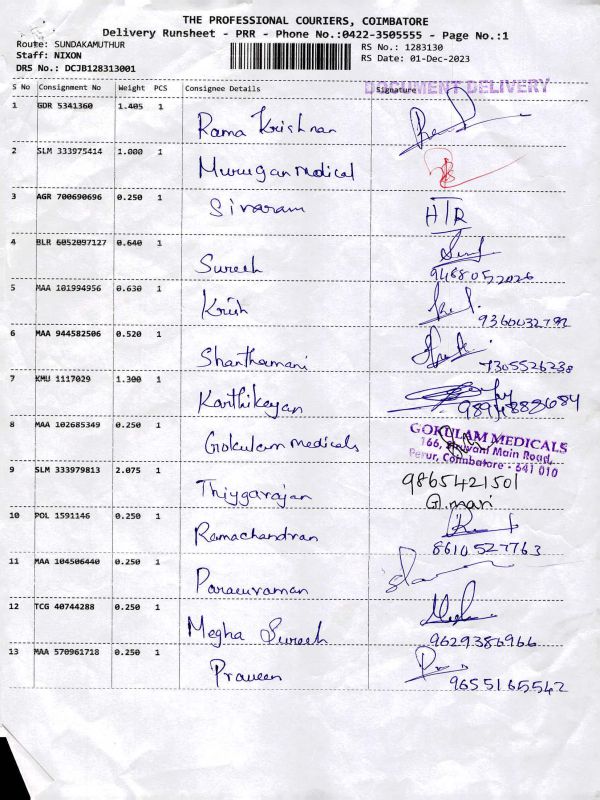 THE PROFESSIONAL COURIERS, COIMBATORE
Delivery Runsheet - PRR - Phone No.:0422-3505555 - Page No.:1
Route: SUNDAKAMUTHUR RS No.: 1283130
Staff: NIXON RS Date: 01-Dec-2023
DRS No.: DCJB128313001
DOCUMENT DELIVERY
S No Consignment No Weight PCS Consignee Details Signature
1 GDR 5341360 1.405 1 Rama Krishnan
2 SLM 333975414 1.000 1 Murugan Medical
3 AGR 700690696 0.250 1 Sivaram HTR
4 BLR 6052097127 0.640 1 Suresh
9488052026
5 MAA 101994956 0.630 1 Krish
9360032792
6 MAA 944582506 0.520 1 Shanthamani
7305526238
7 KMU 1117029 1.300 1 Karthikeyan
8 MAA 102685349 0.250 1 Gokulam Medicals GOKULAM MEDICALS
166, Siruvani Main Road,
Perur, Coimbatore - 641 010
9 SLM 333979813 2.075 1 Thiygarajan 9865421501
G.mari
10 POL 1591146 0.250 1 Ramachandran
8610527763
11 MAA 104506440 0.250 1 Parasuvaman
12 TCG 40744288 0.250 1 Megha Suresh
9629386966
13 MAA 570961718 0.250 1 Praveen
9655165542